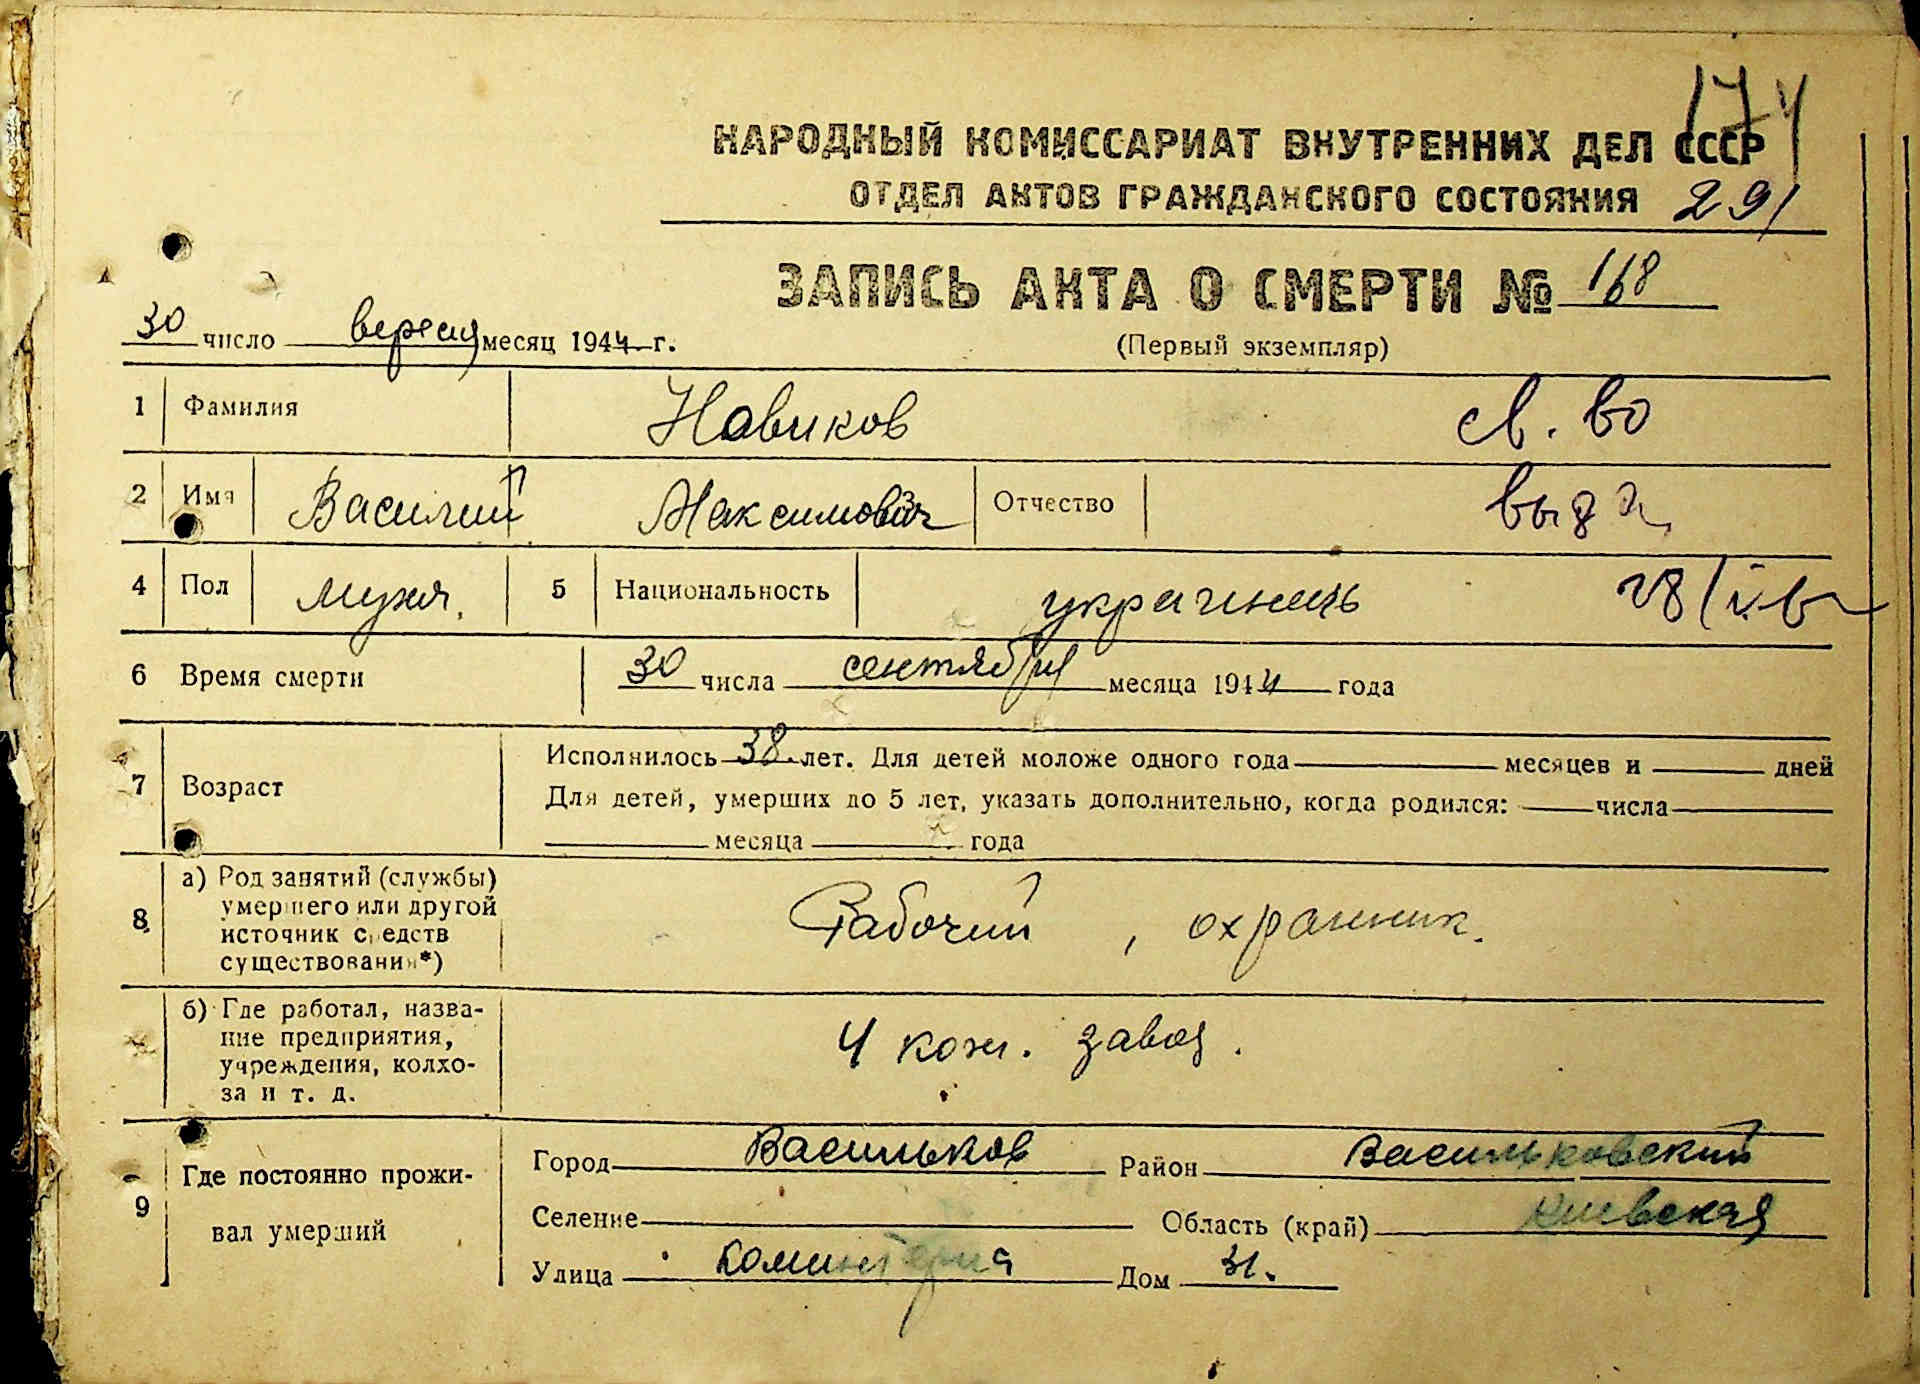 174
НАРОДНЫЙ КОМИССАРИАТ ВНУТРЕННИХ ДЕЛ СССР
ОТДЕЛ АКТОВ ГРАЖДАНСКОГО СОСТОЯНИЯ 291
ЗАПИСЬ АКТА О СМЕРТИ № 168
30 число вересня месяц 1944 г.
(Первый экземпляр)
1 Фамилия Новиков св. во
2 Имя Василий Максимович Отчество выда
4 Пол мужч. 5 Национальность украинець 28/
6 Время смерти 30 числа сентября месяца 1944 года
7 Возраст Исполнилось 38 лет. Для детей моложе одного года месяцев и дней
Для детей, умерших до 5 лет, указать дополнительно, когда родился: числа
месяца года
8 а) Род занятий (службы)
умершего или другой
источник средств
существования*)
Рабочий, охранник.
б) Где работал, назва-
ние предприятия,
учреждения, колхо-
за и т. д.
4 кож. завод.
9 Где постоянно прожи-
вал умерший
Город Васильков Район Васильковский
Селение Область (край) Киевская
Улица Коминтерна Дом 31.